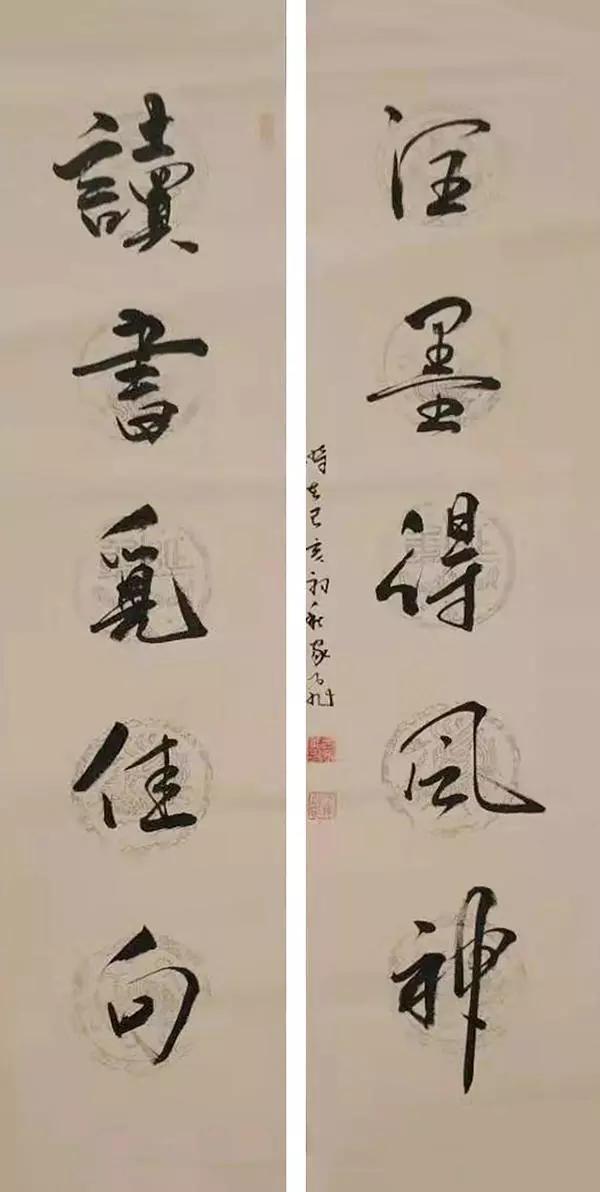 讀書覓佳句
潤墨得風神
時在己亥初秋